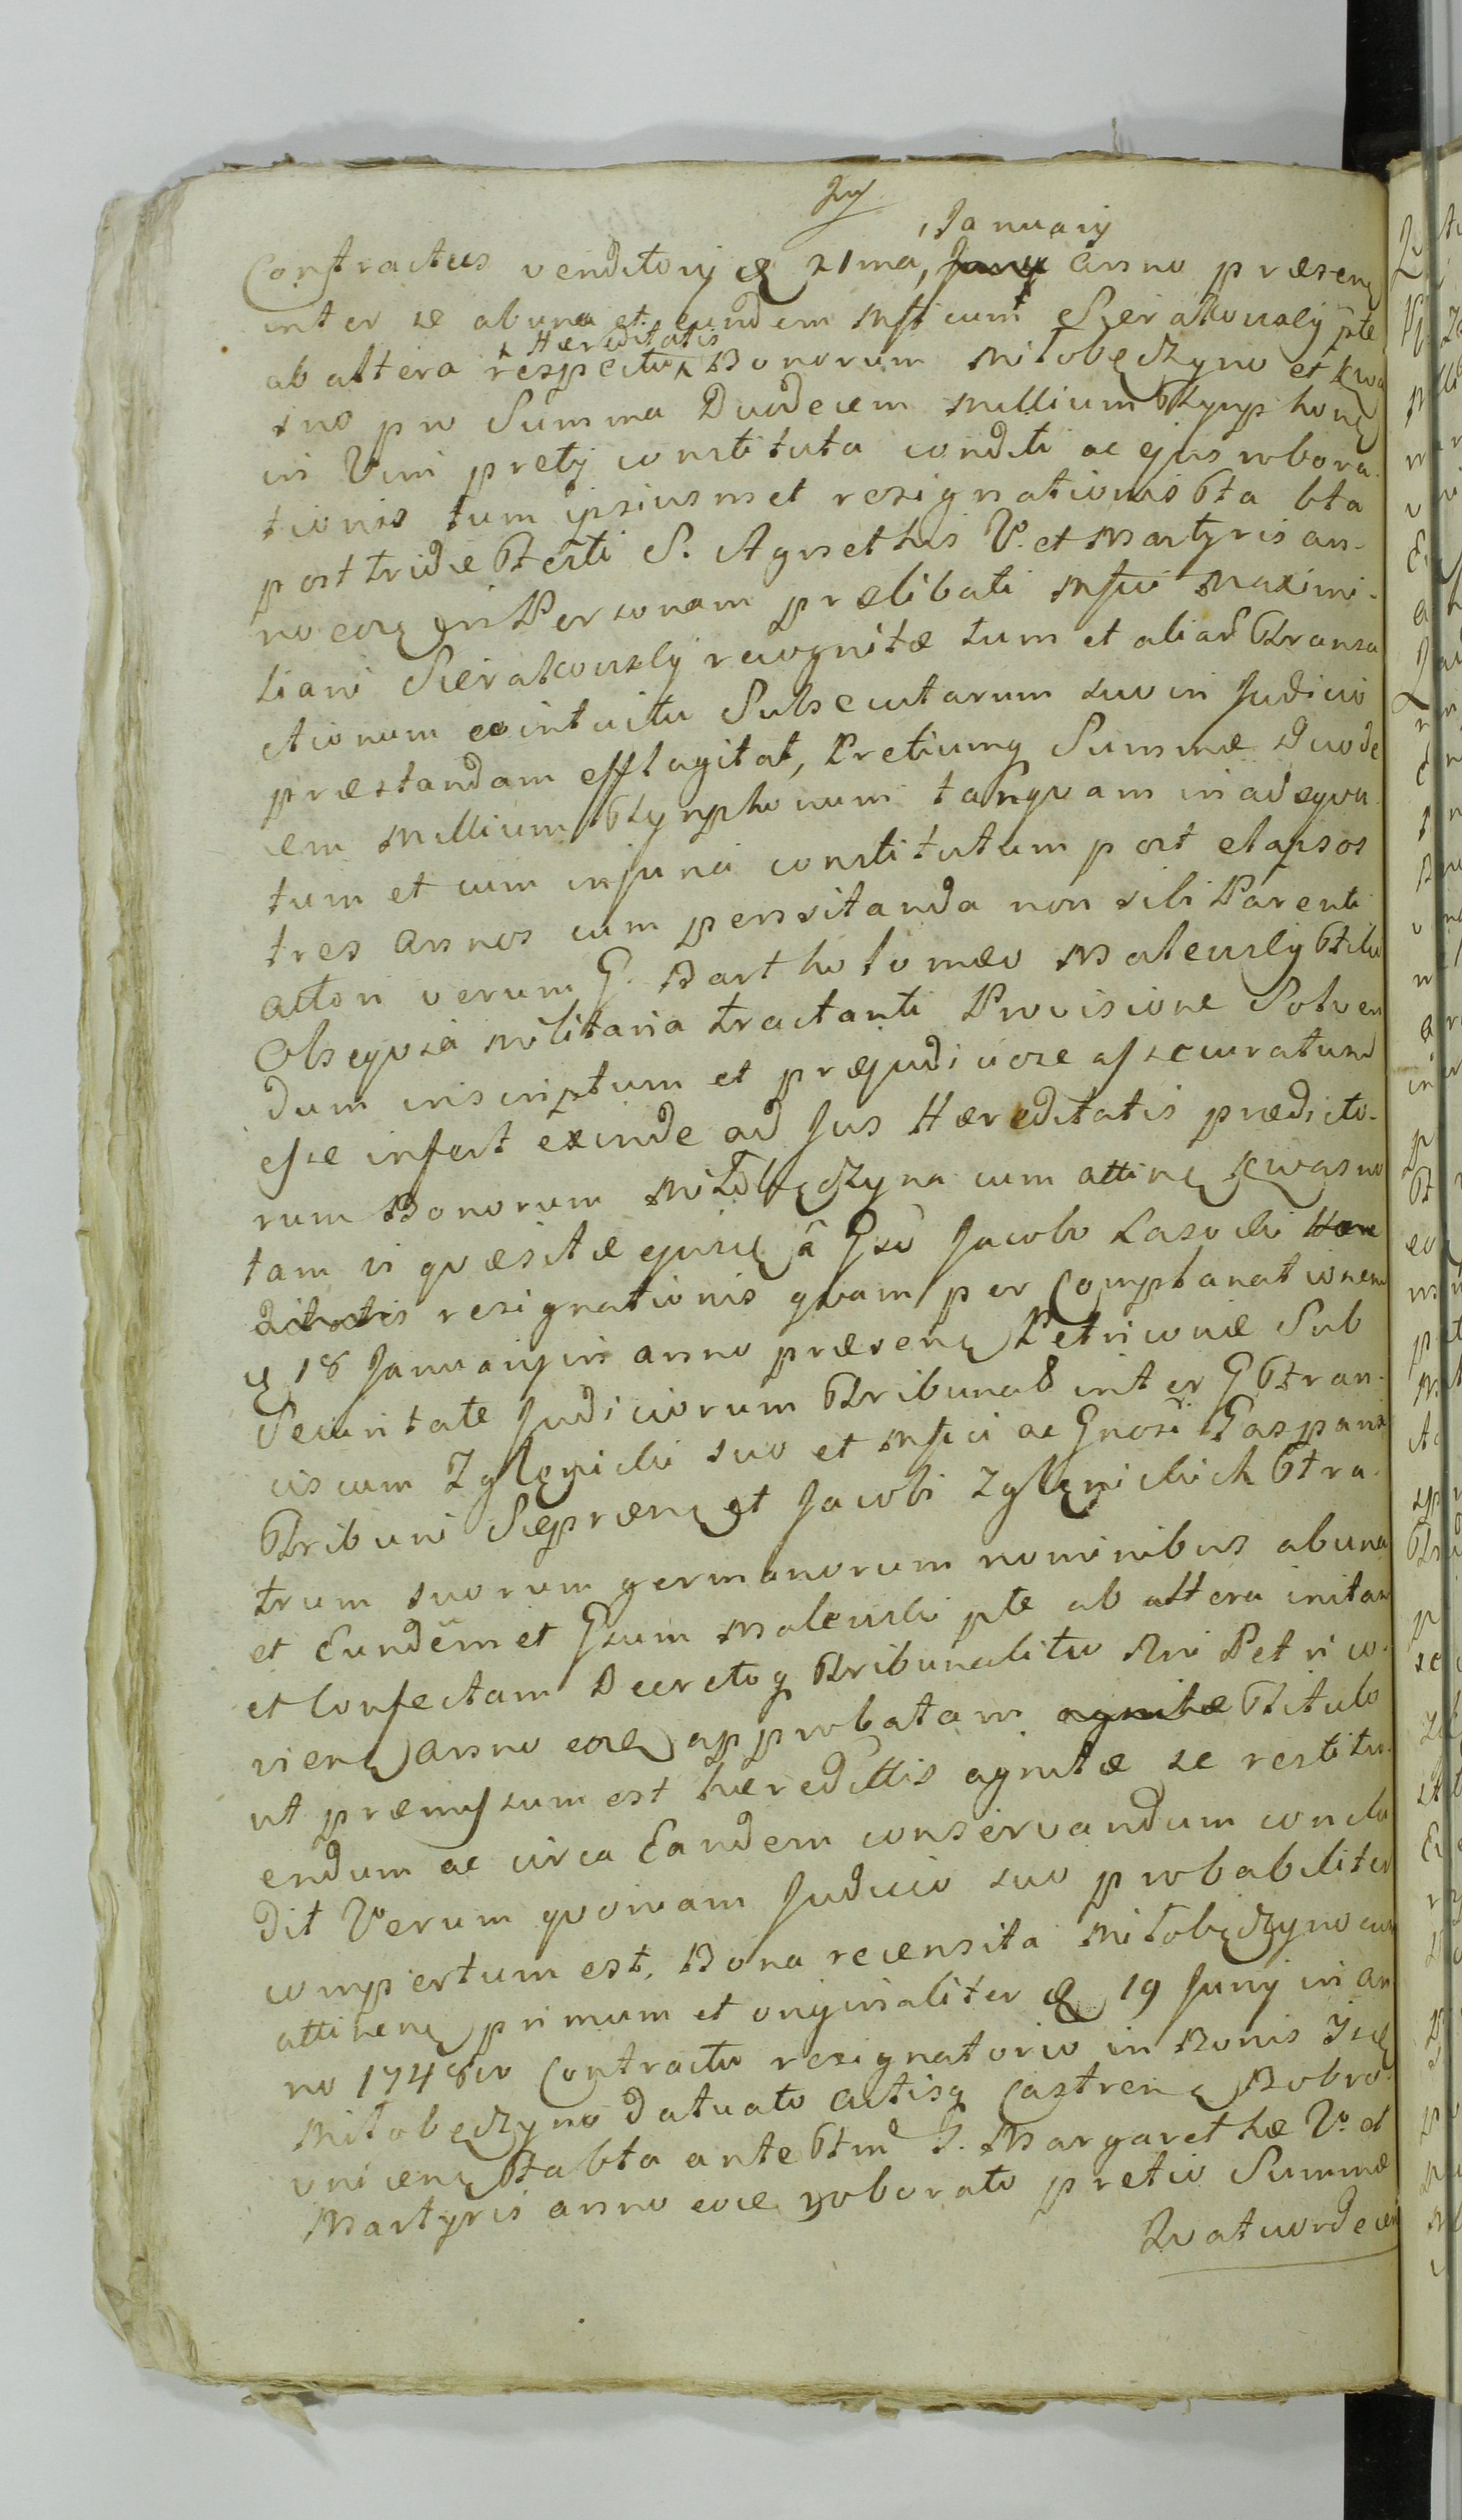 January
Contractus venditorij æ 21ma, Anno præsenę
inter se ab una et eundem Mfficum Sierakowsky pte
ab altera respectu Hæreditatis Bonorum Miłobędzyno et Kwa
sno pro Summa Duodecem Millium Tynphonę
in Vim pretij constituta conditi ac ejus robora-
tionis tum ipsiusmet resignationis Fta bta
post tridie Festi S. Agnethis V. et Martyris an-
no eoę in Personam prælibati Mffici Maximi-
liani Sierakowsky recognitæ tum et aliar Transa
ctionum eointuitu Subsecutarum suo in Judicio
præstandam efflagitat, Pretiumq Summæ Duode
cem Millium Tynphonum tanquam inadequa
tum et cum injuria constitutum post elapsos
tres annos cum pensitanda non sibi Parenti
actori verum G. Bartholomæo Malewsky Filio
Obsequia militaria tractanti Provisione Solven
dum inscriptum et præjudiciose assecuratum
esse infert exinde ad Jus Hæreditatis prædicto-
rum Bonorum Miłobędzyna cum attinę Kwasno
tam vi quæsitæ ejusę â Gso Jacobo Lasocki Hære
ditatis resignationis quam per Complanationem
ę 18 Januarij in anno præsenę Petricoviæ Sub
Securitate Judiciorum Tribunal inter G Fran-
ciscum Zglęnicki suo et Mffici ac Gnosi Gaspari
Tribuni Siepræenę et Jacobi Zglęnickich Fra-
trum suorum germanorum nominibus ab una
et Eundemet Gsum Malewski pte ab altera initam
et Confectam Decretoq Tribunalitio Rni Petrico-
vienę anno eoę approbatam Titulo
ut præmissum est hæredittis agnitæ se restitu-
endum ac circa Eandem conservandum conclu
dit Verum quoniam Judicio suo probabiliter
compertum est, Bona recensita Miłobędzyno cum
attinenę primum et originaliter æ 19 Junij in an
no 1748vo Contractu resignatorio in Bonis Iisę
Miłobędzyno datuato actisq Castrenę Bobro-
vnicenę Fta bta ante Ftm S. Margarethæ V. et
Martyris anno eoę roborato pretio Summæ
Quatuordecem